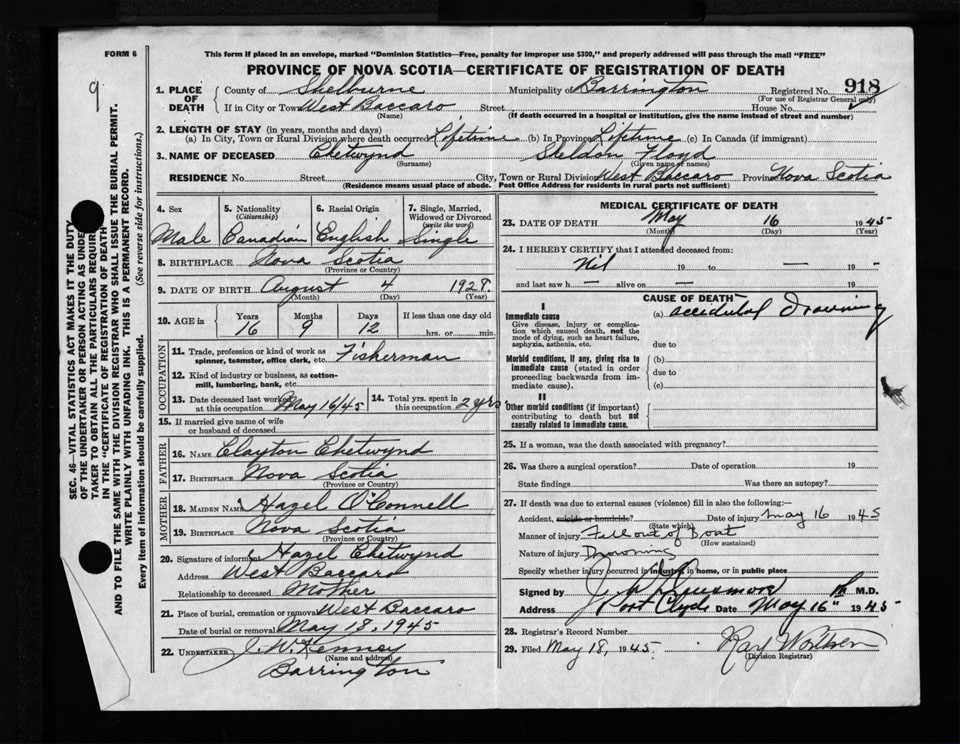 FORM 6
This form if placed in an envelope, marked "Dominion Statistics—Free, penalty for improper use $300," and properly addressed will pass through the mail "FREE"
PROVINCE OF NOVA SCOTIA—CERTIFICATE OF REGISTRATION OF DEATH
9
1. PLACE OF DEATH
County of Shelburne Municipality of Barrington Registered No. 918
(For use of Registrar General only)
If in City or Town West Baccaro Street House No.
(Name) (If death occurred in a hospital or institution, give the name instead of street and number)
2. LENGTH OF STAY (in years, months and days)
(a) In City, Town or Rural Division where death occurred Lifetime (b) In Province Lifetime (c) In Canada (if immigrant)
3. NAME OF DECEASED Chetwynd Sheldon Floyd
(Surname) (Given name or names)
RESIDENCE No. Street City, Town or Rural Division West Baccaro Province Nova Scotia
(Residence means usual place of abode. Post Office Address for residents in rural parts not sufficient)
4. Sex 5. Nationality (Citizenship) 6. Racial Origin 7. Single, Married, Widowed or Divorced (write the word)
Male Canadian English Single
8. BIRTHPLACE Nova Scotia
(Province or Country)
9. DATE OF BIRTH August 4 1928
(Month) (Day) (Year)
10. AGE in Years Months Days If less than one day old
16 9 12 hrs. or min.
OCCUPATION
11. Trade, profession or kind of work as spinner, teamster, office clerk, etc. Fisherman
12. Kind of industry or business, as cotton-mill, lumbering, bank, etc.
13. Date deceased last worked at this occupation May 16/45 14. Total yrs. spent in this occupation 2 yrs
15. If married give name of wife or husband of deceased
FATHER
16. NAME Clayton Chetwynd
17. BIRTHPLACE Nova Scotia
(Province or Country)
MOTHER
18. MAIDEN NAME Hazel O'Connell
19. BIRTHPLACE Nova Scotia
(Province or Country)
20. Signature of informant Hazel Chetwynd
Address West Baccaro
Relationship to deceased Mother
21. Place of burial, cremation or removal West Baccaro
Date of burial or removal May 18, 1945
22. UNDERTAKER J. W. Kenney
(Name and address)
Barrington
MEDICAL CERTIFICATE OF DEATH
23. DATE OF DEATH May 16 1945
(Month) (Day) (Year)
24. I HEREBY CERTIFY that I attended deceased from:
Nil 19 to — 19 -
and last saw h — alive on — 19 -
CAUSE OF DEATH
I
Immediate cause (a) accidental Drowning
Give disease, injury or complication which caused death, not the mode of dying, such as heart failure, asphyxia, asthenia, etc.
due to
Morbid conditions, if any, giving rise to immediate cause (stated in order proceeding backwards from immediate cause).
(b)
due to
(c)
II
Other morbid conditions (if important) contributing to death but not causally related to immediate cause.
25. If a woman, was the death associated with pregnancy?
26. Was there a surgical operation? Date of operation 19
State findings Was there an autopsy?
27. If death was due to external causes (violence) fill in also the following:—
Accident, suicide or homicide? Date of injury May 16 1945
(State which)
Manner of injury Fell out of boat
(How sustained)
Nature of injury Drowning
Specify whether injury occurred in industry, in home, or in public place
Signed by M.D.
Address Port Clyde Date May 16" 1945
28. Registrar's Record Number
29. Filed May 18, 1945. Ray
(Division Registrar)
SEC. 46—VITAL STATISTICS ACT MAKES IT THE DUTY
OF THE UNDERTAKER OR PERSON ACTING AS UNDER
TAKER TO OBTAIN ALL THE PARTICULARS REQUIR
IN THE "CERTIFICATE OF REGISTRATION OF DEATH"
AND TO FILE THE SAME WITH THE DIVISION REGISTRAR WHO SHALL ISSUE THE BURIAL PERMIT.
WRITE PLAINLY WITH UNFADING INK. THIS IS A PERMANENT RECORD.
Every item of information should be carefully supplied. (See reverse side for instructions.)